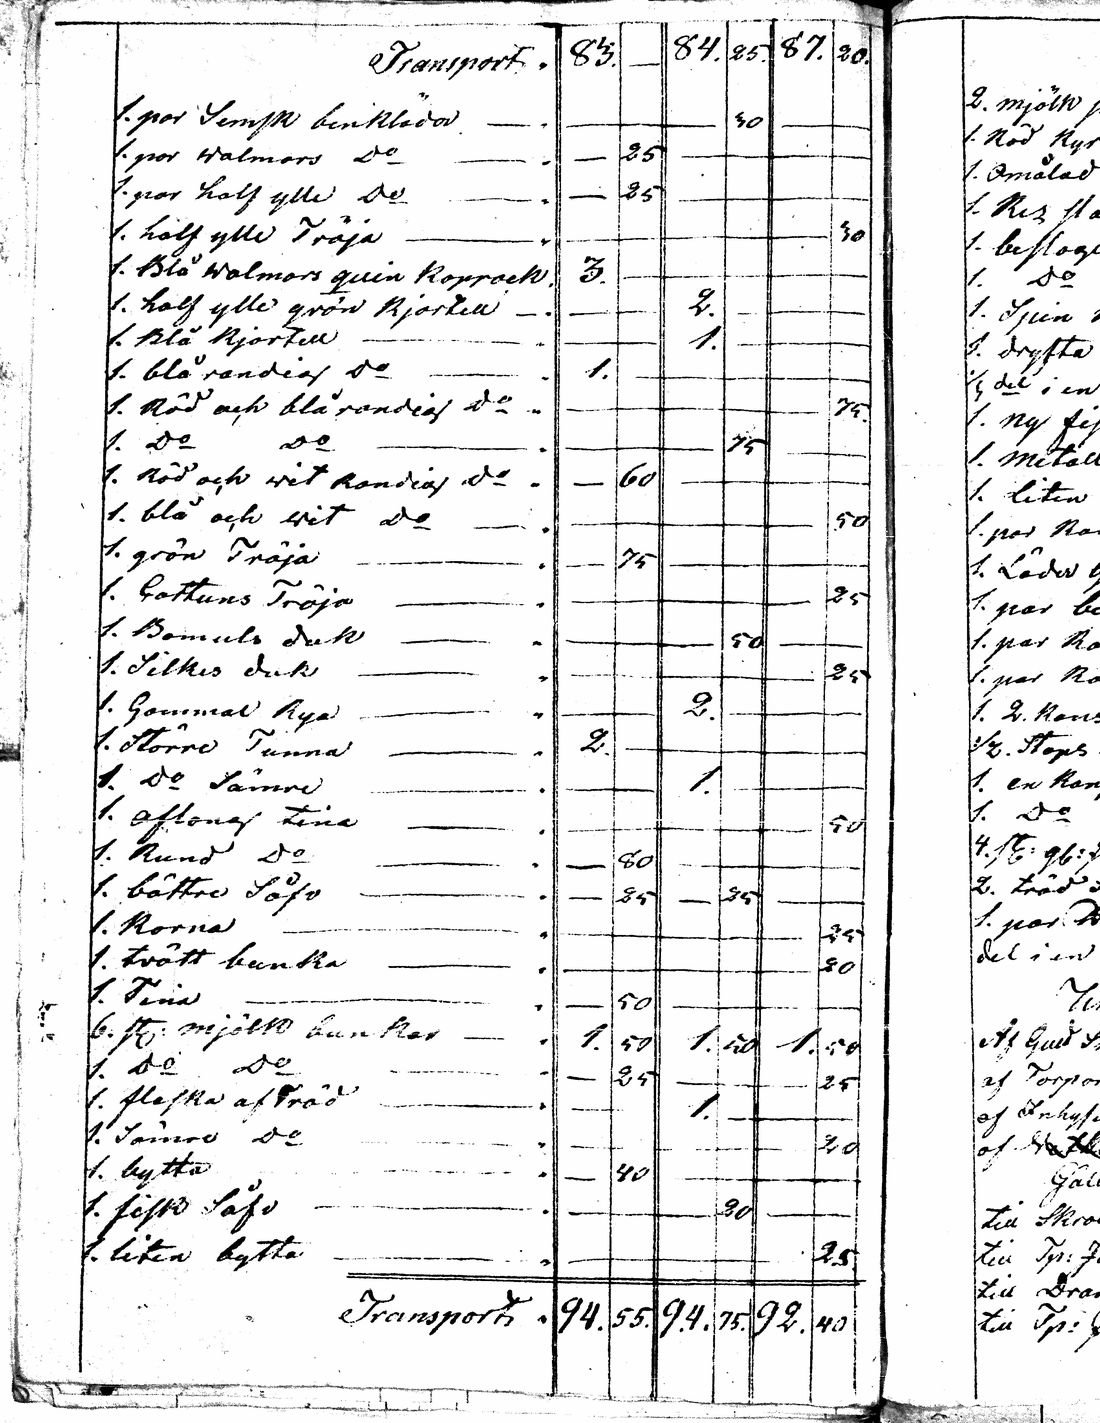 Transport . 83. — 84. 25 87. 20.
1. par Semsk benkläder — 50
1. par walmars Do — 25
1. par half ylle Do — 25
1. half ylle Tröja — 50
1. Blå walmars quin Kaprock. 3.
1. half ylle grön Kjortell — 2.
1. Blå Kjortell — 1.
1. blå randig Do — 1.
1. Röd och blå randig Do — 75.
1. Do Do — 75
1. Röd och wit Randig Do — 60
1. blå och wit Do — 50
1. grön Tröja — 75
1. Cattuns Tröja — 25
1. Bomuls duk — 50
1. Silkes duk — 25
1. Gammal Rya — 2.
1. Större Tunna — 2.
1. Do Sämre — 1.
1. aflång tina — 50
1. Rund Do — 80
1. bättre Såfo — 25 — 25
1. Korna — 25
1. trått bunka — 20
1. Tina — 50
6. st: mjölk bunkar — 1. 50 1. 50 1. 50
1. Do Do — 25 — 25
1. flaska af Träd — 1.
1. Sämre Do — 20
1. bytta — 40
1. fisk Såfo — 20
1. liten bytta — 25
Transport . 94. 55. 94. 75. 92. 40
2. mjölk
1. Röd
1. Omålad
1. Rez
1.
1. Do
1. Spin
1. dryfta
1/4 del i en
1. ny
1. metall
1. liten
1. par
1. Läder
1. par
1. par
1. par
1. 2. Kans
1/2. Stops
1. en Kan
1. Do
4. st:
2. träd
1. par
del i en
Af Gud
af Torpar
af Inhyse
af
till Skro
till Tp:
till Dran
till Tp: